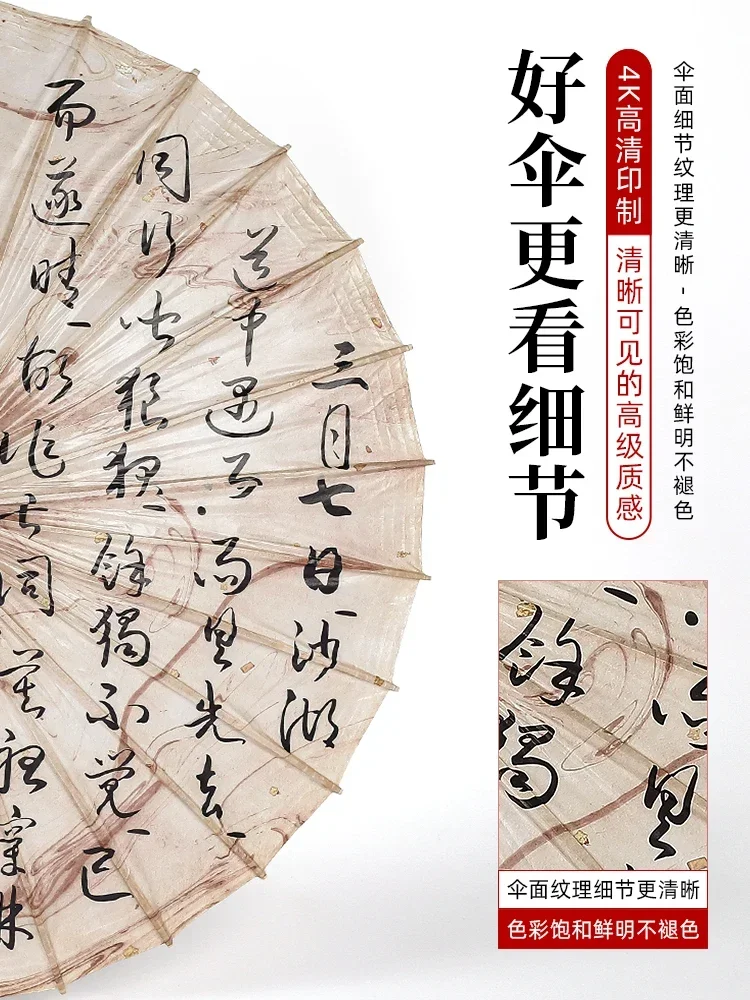 好伞更看细节
4K高清印制
清晰可见的高级质感
伞面细节纹理更清晰-色彩饱和鲜明不褪色
三月七日沙湖
道中遇雨雨具先去
同行皆狼狽餘獨不覺已
而遂晴故作此詞莫聽穿林
雨具
餘獨
伞面纹理细节更清晰
色彩饱和鲜明不褪色